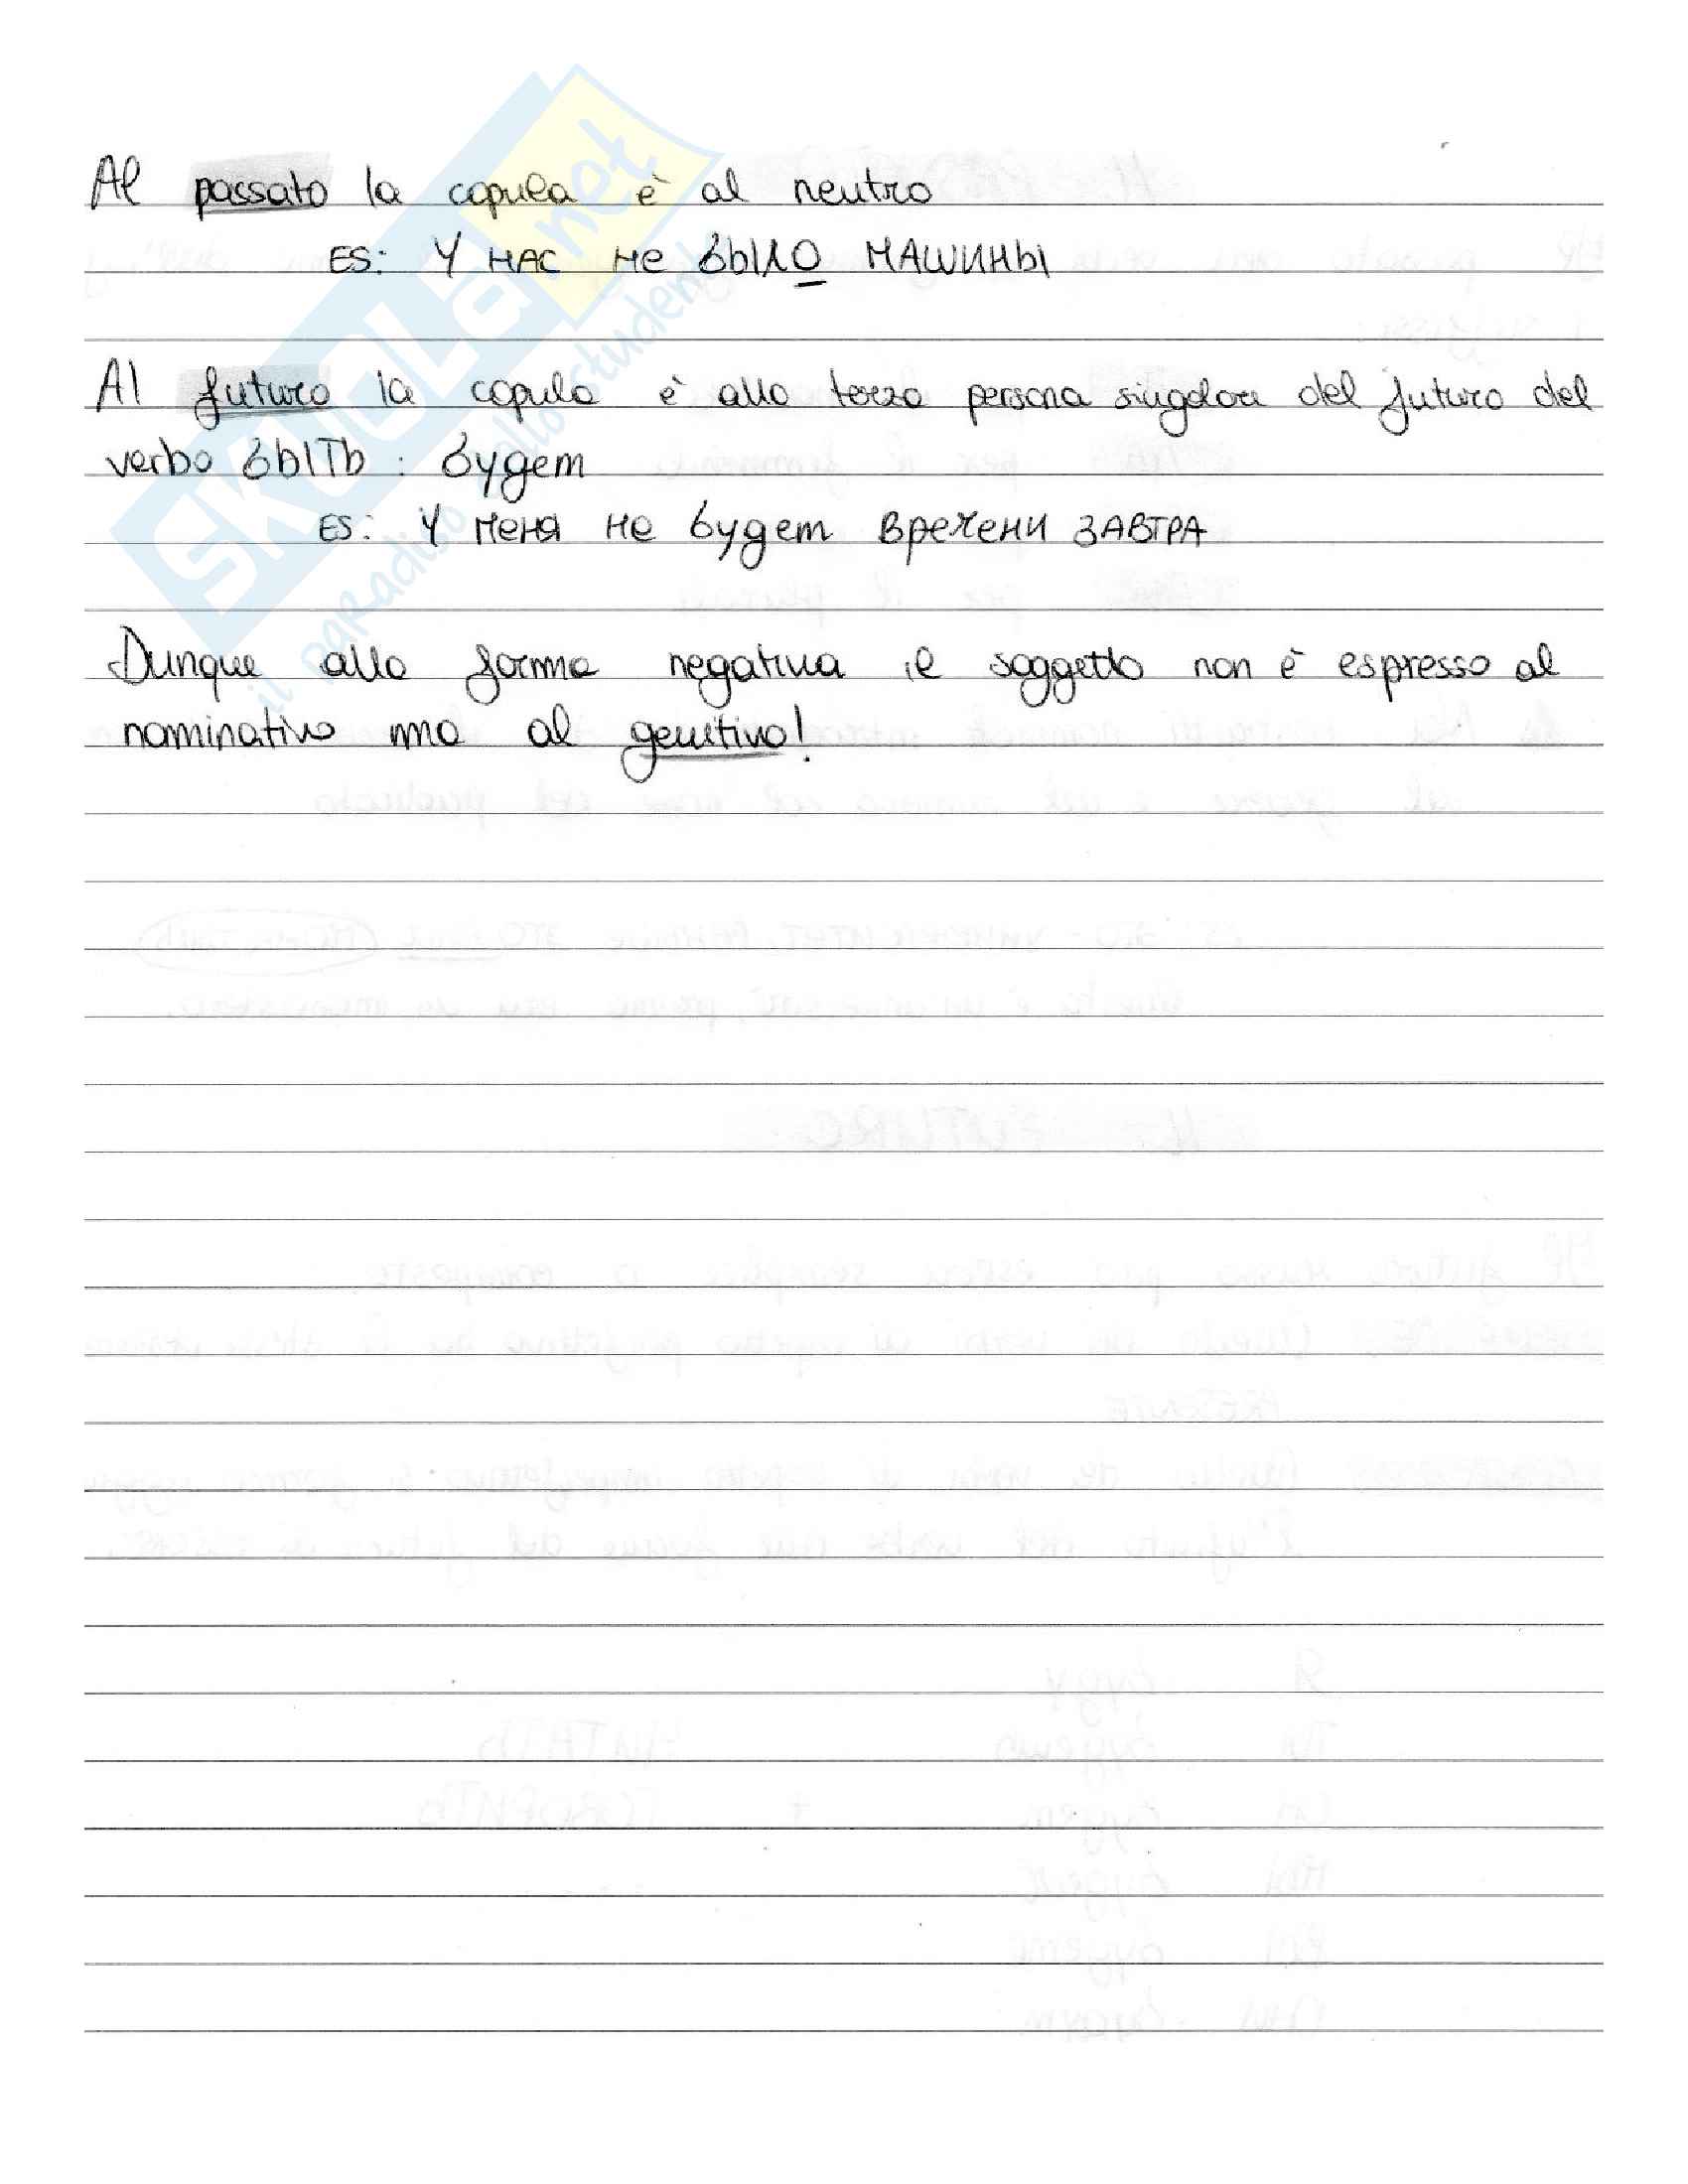 Al passato la copula è al neutro
ES: У нас не было машины
Al futuro la copula è alla terza persona singolare del futuro del
verbo быть : будет
ES: У меня не будет времени завтра
Dunque alla forma negativa il soggetto non è espresso al
nominativo ma al genitivo!
SKUOLA.net
il paradiso dello studente